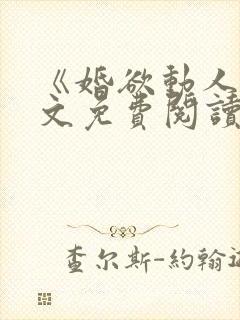 《婚欲動人
文免費閱讀
查尔斯-約翰